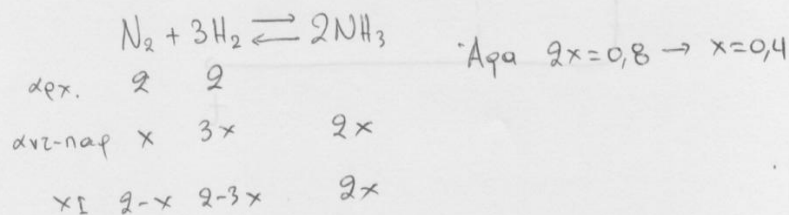 N₂ + 3H₂ ⇌ 2NH₃
Άρα 2x = 0,8 → x = 0,4
αρχ. 2 2
αντ-παρ x 3x 2x
ΧΙ 2-x 2-3x 2x